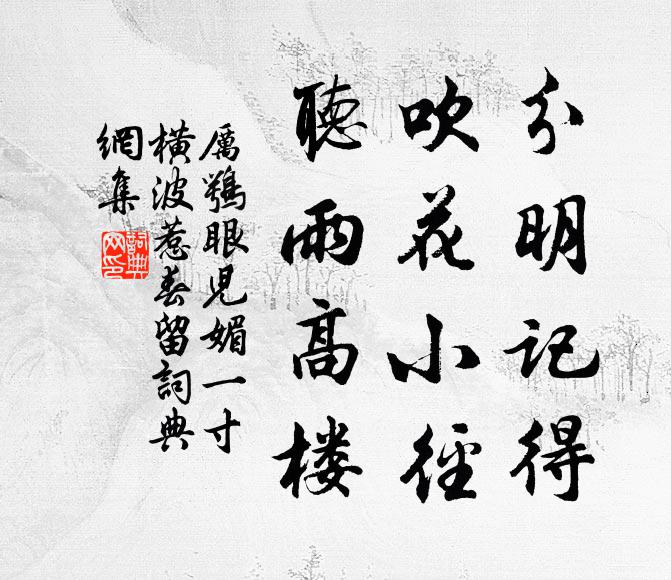 分明記得
吹花小徑
聽雨高楼
厲鶚眼兒媚一寸
橫波惹春留詞典
網集
詞典
网印